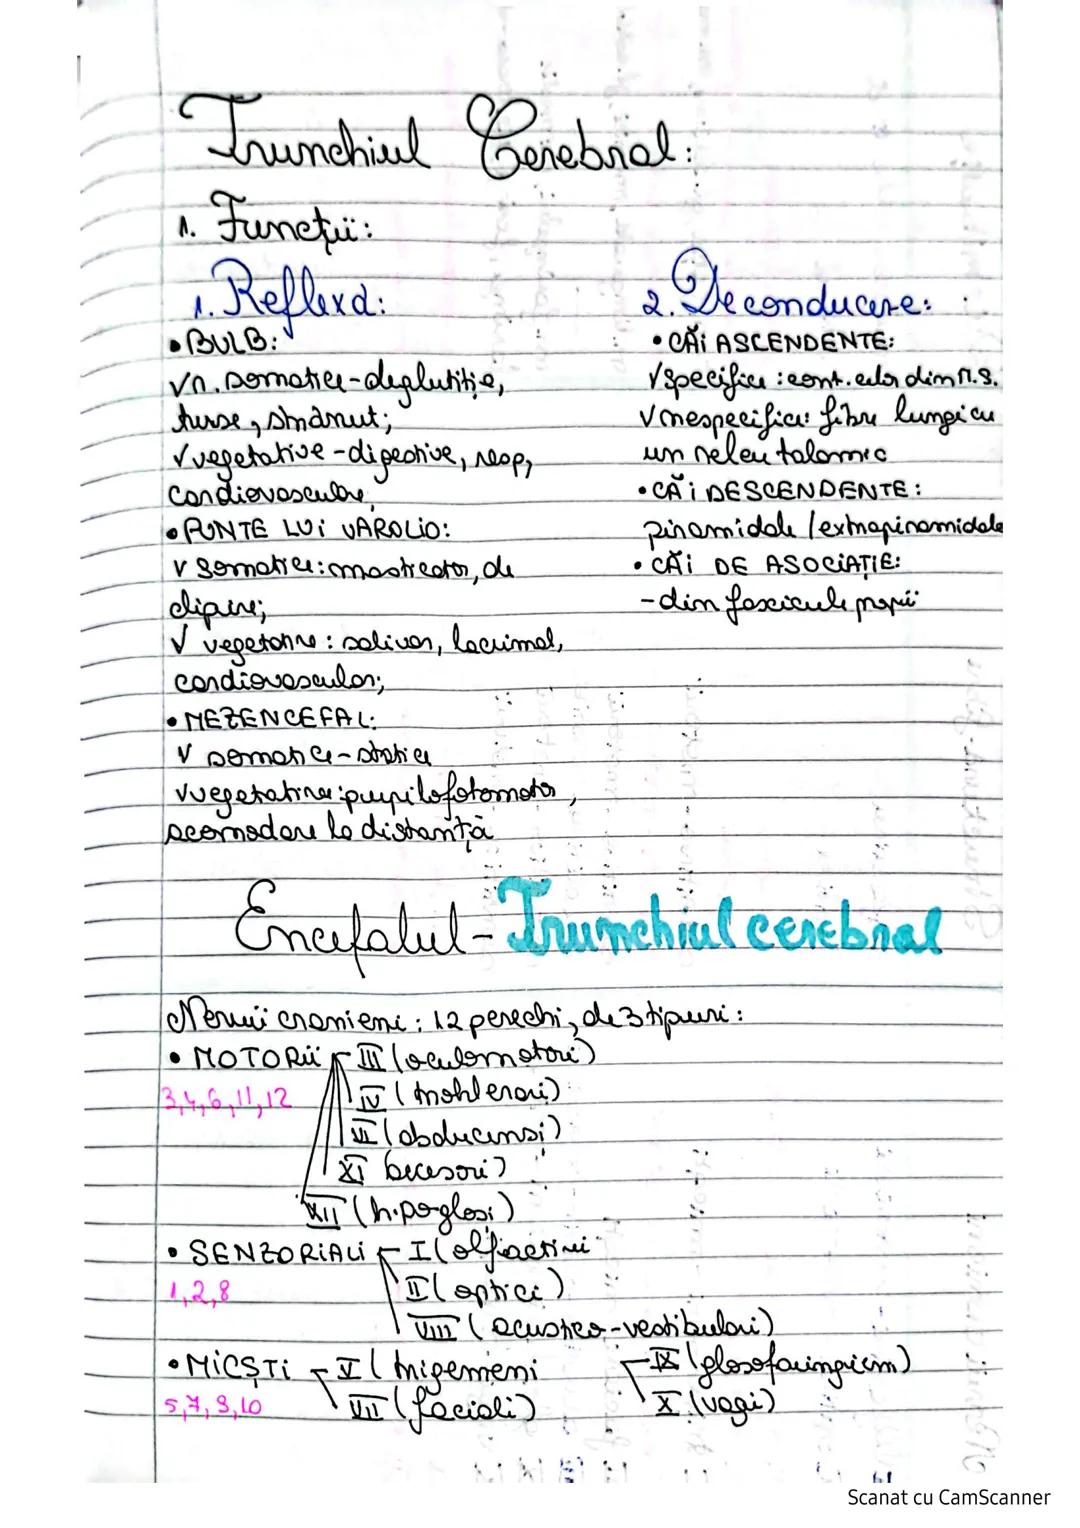 Trunchiul Cerebral:
1. Funcții:
1. Reflexă:
• BULB:
√ r. somatice-deglutiție,
tuse, strănut;
√ vegetative - digestive, resp,
cardiovasculare,
• PUNTE LUI VAROLIO:
√ somatice: masticator, de
clipire;
√ vegetative: salivar, lacrimal,
cardiovascular;
• MEZENCEFAL:
√ somatice-statice
√ vegetative: pupilofotomotor,
acomodare la distanță
2. De conducere:
• CĂI ASCENDENTE:
√ specifice: cont. celor din M.S.
√ nespecifice: fibre lungi cu
un releu talamic
• CĂI DESCENDENTE:
piramidale/extrapiramidale
• CĂI DE ASOCIAȚIE:
-din fascicule proprii
Encefalul-Trunchiul cerebral
Nervii cranieni: 12 perechi, de 3 tipuri:
• MOTORII III (oculomotori)
3,4,6,11,12 IV (trohleari)
VI (abducensi)
XI accesori)
XII (hipoglosi)
• SENZORIALI I (olfactivi
1,2,8 II (optici)
VIII (acustico-vestibulari)
• MICȘTI V (trigemeni IX (glosofaringieni)
5,7,9,10 VII (faciali) X (vagi)
Scanat cu CamScanner